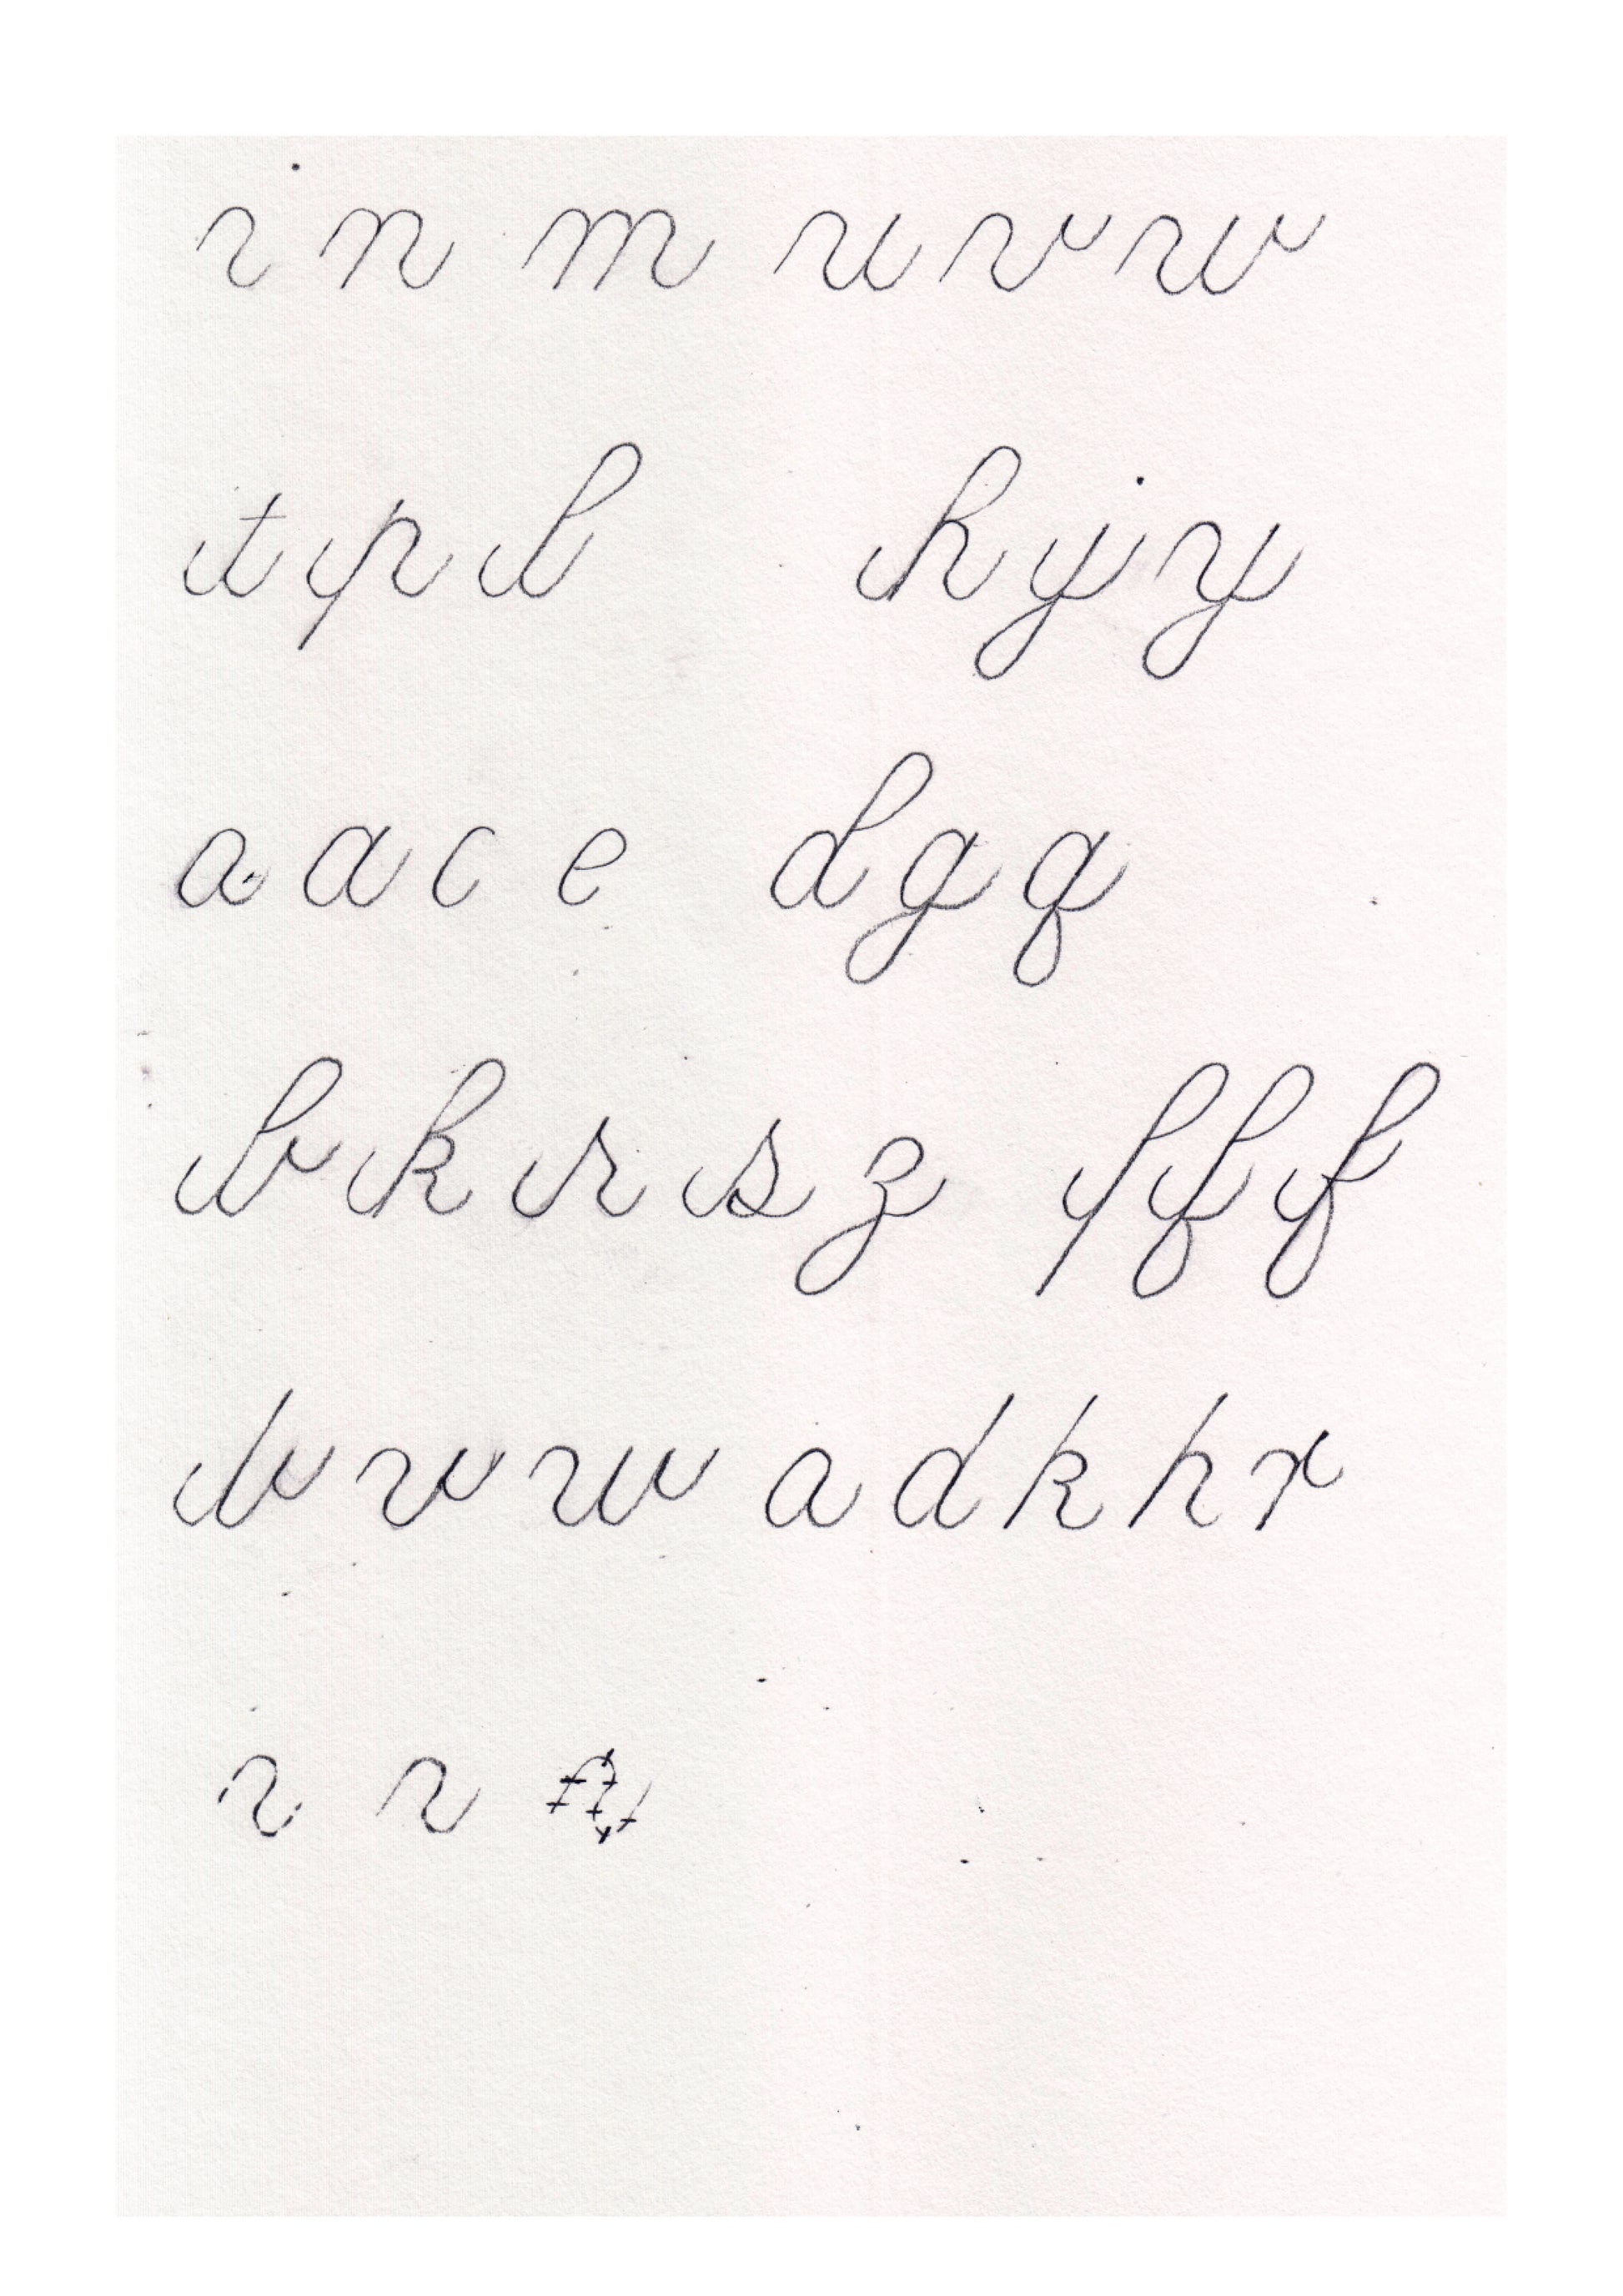 i n m u v w
t p l h j y
a a c e d g q
b k r s z f f f
b v w a d k h r